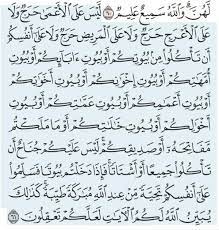 لَّهُنَّ وَٱللَّهُ سَمِيعٌ عَلِيمٌ ٦٠ لَّيْسَ عَلَى ٱلْأَعْمَىٰ حَرَجٌ وَلَا
عَلَى ٱلْأَعْرَجِ حَرَجٌ وَلَا عَلَى ٱلْمَرِيضِ حَرَجٌ وَلَا عَلَىٰٓ أَنفُسِكُمْ
أَن تَأْكُلُوا۟ مِنۢ بُيُوتِكُمْ أَوْ بُيُوتِ ءَابَآئِكُمْ أَوْ بُيُوتِ
أُمَّهَـٰتِكُمْ أَوْ بُيُوتِ إِخْوَٰنِكُمْ أَوْ بُيُوتِ أَخَوَٰتِكُمْ
أَوْ بُيُوتِ أَعْمَـٰمِكُمْ أَوْ بُيُوتِ عَمَّـٰتِكُمْ أَوْ بُيُوتِ
أَخْوَٰلِكُمْ أَوْ بُيُوتِ خَـٰلَـٰتِكُمْ أَوْ مَا مَلَكْتُم
مَّفَاتِحَهُۥٓ أَوْ صَدِيقِكُمْ لَيْسَ عَلَيْكُمْ جُنَاحٌ أَن
تَأْكُلُوا۟ جَمِيعًا أَوْ أَشْتَاتًا فَإِذَا دَخَلْتُم بُيُوتًا فَسَلِّمُوا۟
عَلَىٰٓ أَنفُسِكُمْ تَحِيَّةً مِّنْ عِندِ ٱللَّهِ مُبَـٰرَكَةً طَيِّبَةً كَذَٰلِكَ
يُبَيِّنُ ٱللَّهُ لَكُمُ ٱلْـَٔايَـٰتِ لَعَلَّكُمْ تَعْقِلُونَ ٦١